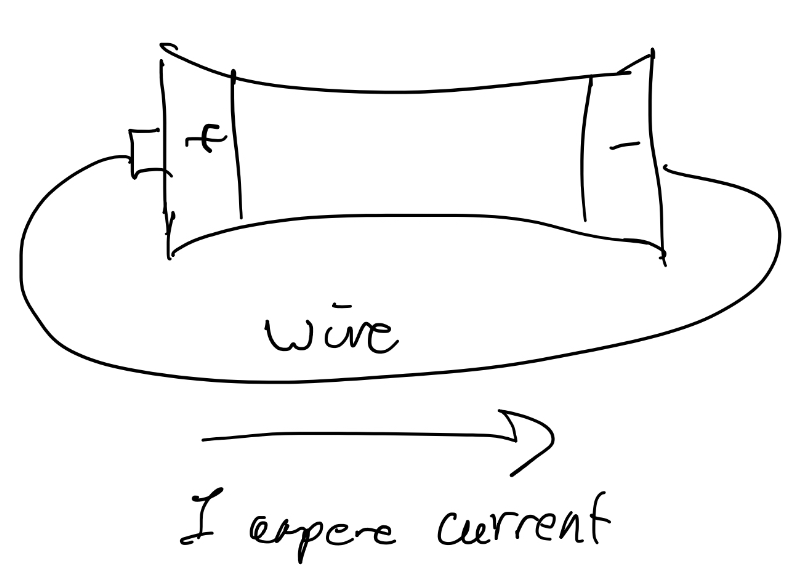 + -
wire
I ampere current